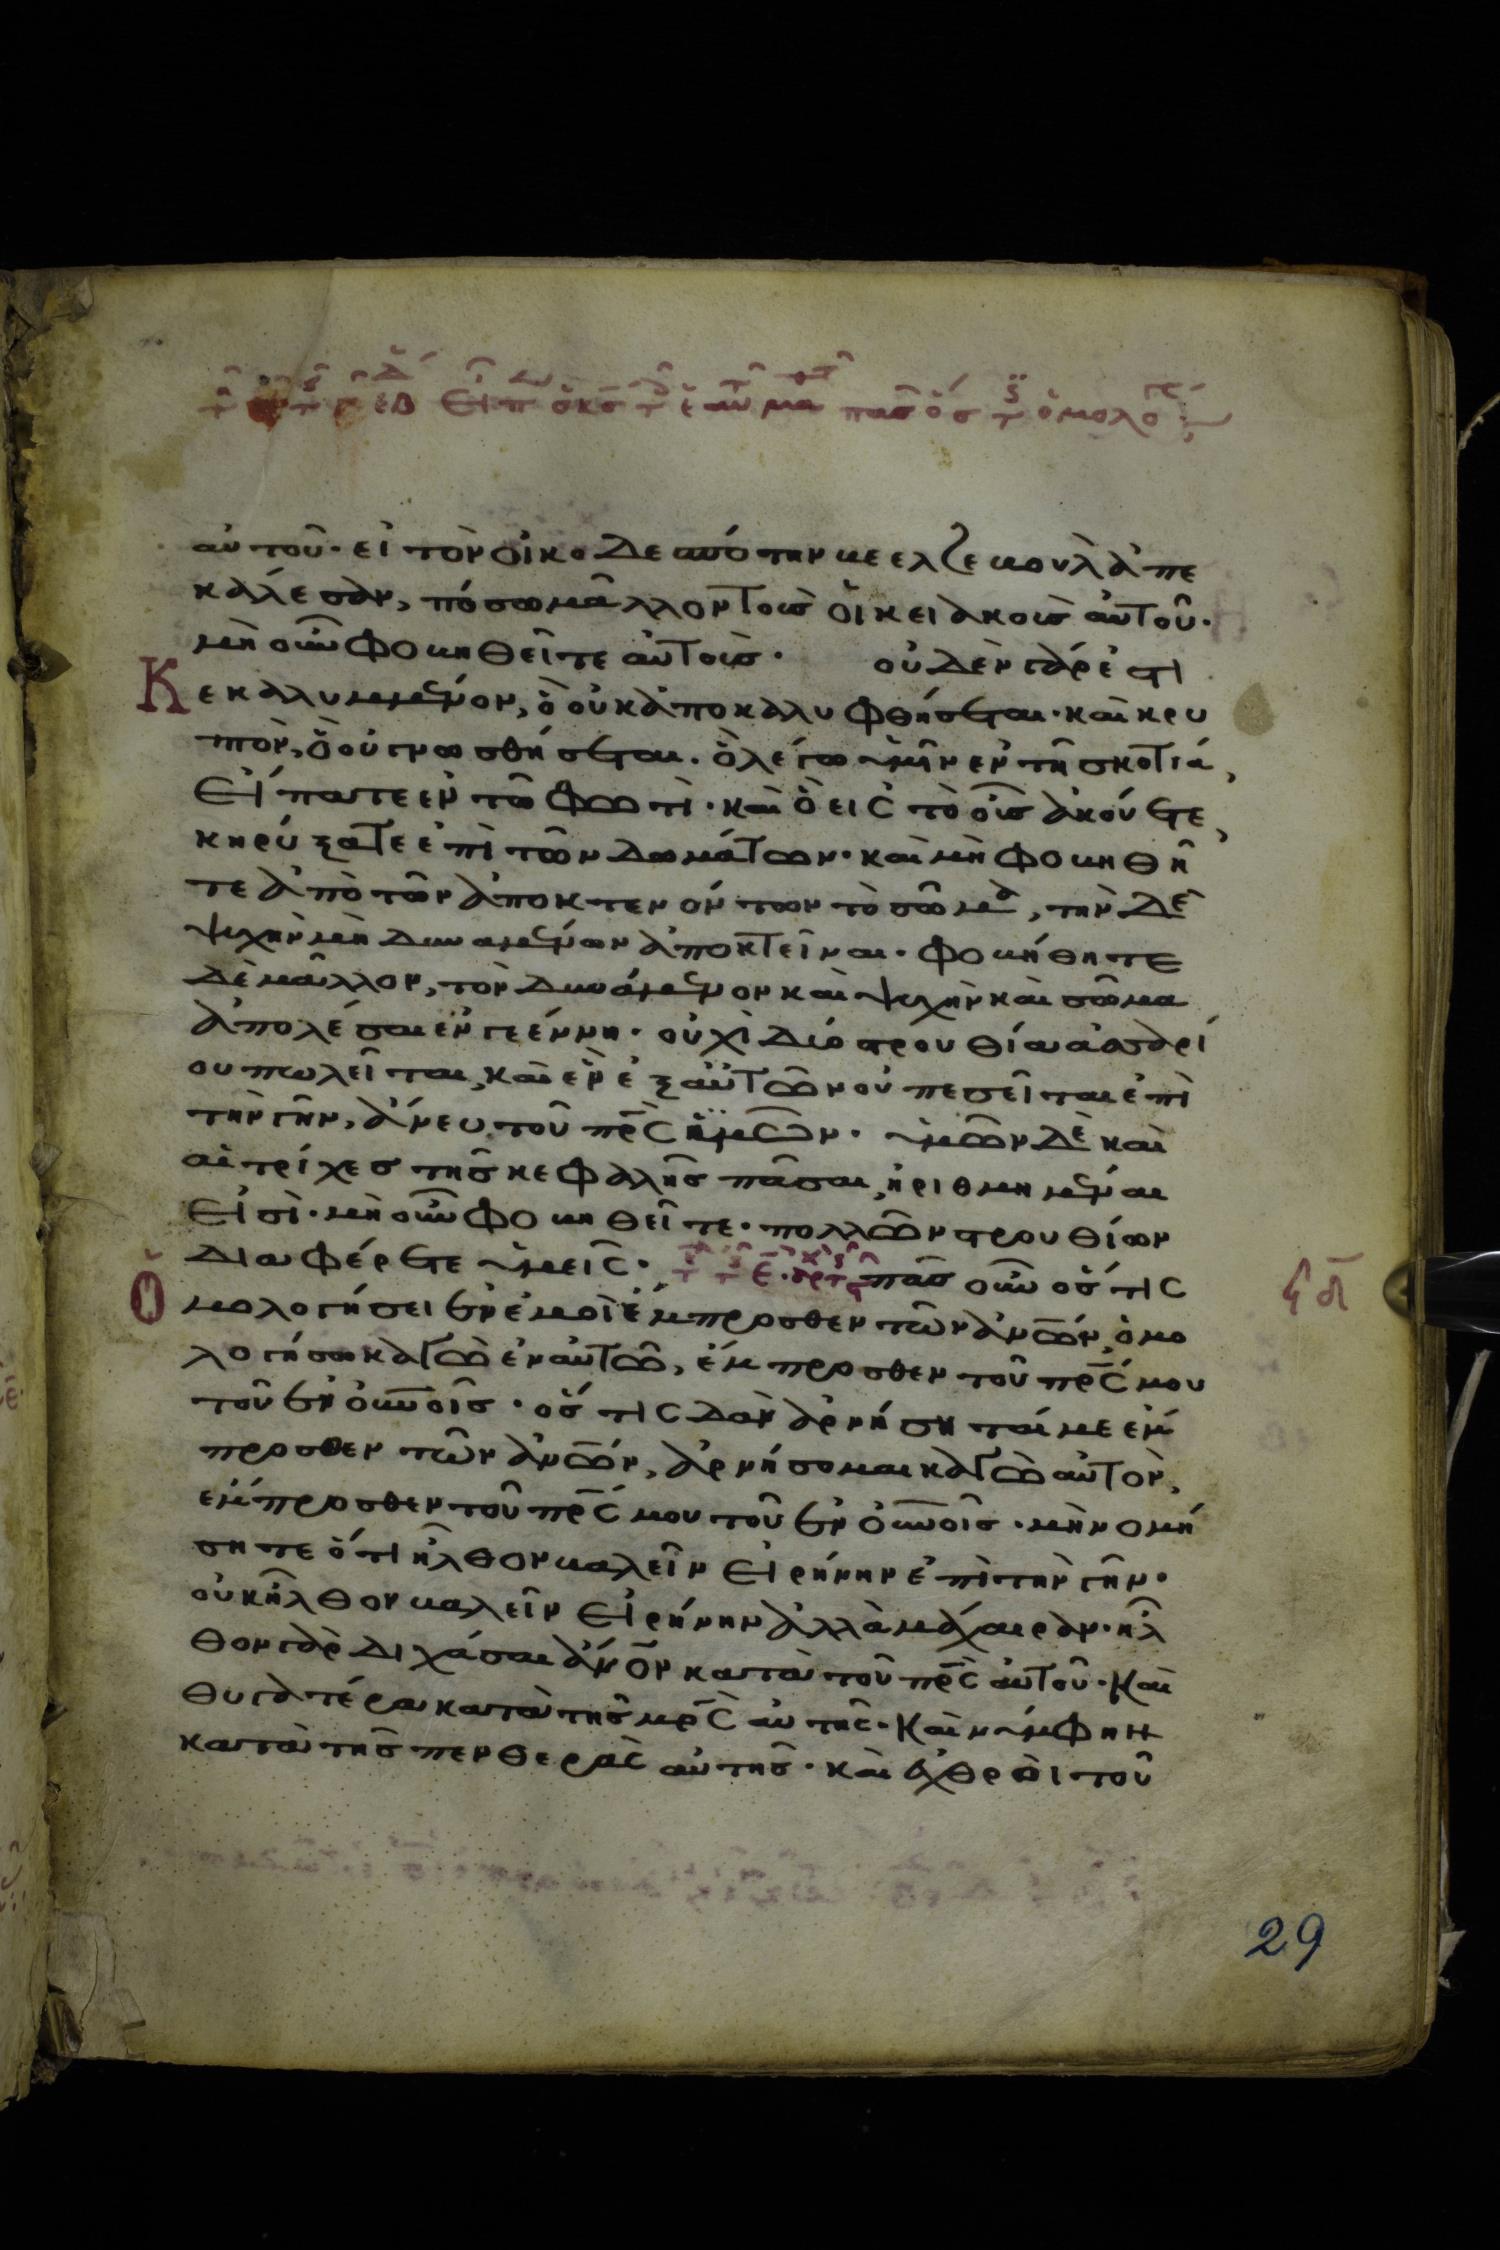 αὐτοῦ· εἰ τὸν οἰκοδεσπότην βεελζεβοὺλ ἀπε
κάλεσαν, πόσω μᾶλλον τοὺς οἰκειακοὺς αὐτοῦ·
μὴ οὖν φοβηθεῖτε αὐτοὺς· οὐδὲν γάρ ἐστι
κεκαλυμμένον, ὃ οὐκ ἀποκαλυφθήσεται· καὶ κρυ
πτὸν, ὃ οὐ γνωσθήσεται. ὃ λέγω ὑμῖν ἐν τῆ σκοτία,
εἴπατε ἐν τῶ φωτὶ· καὶ ὃ εἰς τὸ οὖς ἀκούετε,
κηρύξατε ἐπὶ τῶν δωμάτων· καὶ μὴ φοβηθῆ
τε ἀπὸ τῶν ἀποκτενόντων τὸ σῶμα, τὴν δὲ
ψυχὴν μὴ δυναμένων ἀποκτεῖναι· φοβήθητε
δὲ μᾶλλον, τὸν δυνάμενον καὶ ψυχὴν καὶ σῶμα
ἀπολέσαι ἐν γεέννη· οὐχὶ δύο στρουθία ἀσσαρί
ου πωλεῖται, καὶ ἓν ἐξ αὐτῶν οὐ πεσεῖται ἐπὶ
τὴν γῆν, ἄνευ τοῦ πρς ὑμῶν· ὑμῶν δὲ καὶ
αἱ τρίχες τῆς κεφαλῆς πᾶσαι, ἠριθμημέναι
εἰσὶ· μὴ οὖν φοβηθεῖτε· πολλῶν στρουθίων
διαφέρετε ὑμεῖς· πᾶσ οὖν ὅστις
ὁμολογήσει ἐν ἐμοὶ ἔμπροσθεν τῶν ἀνων, ὁμο
λογήσω κἀγὼ ἐν αὐτῶ, ἔμπροσθεν τοῦ πρς μου
τοῦ ἐν οὐνοις· ὅστις δ' ἂν ἀρνήσηταί με ἔμ
προσθεν τῶν ἀνων, ἀρνήσομαι κἀγὼ αὐτὸν,
ἔμπροσθεν τοῦ πρς μου τοῦ ἐν οὐνοις· μὴ νομή
σητε ὅτι ἦλθον βαλεῖν εἰρήνην ἐπὶ τὴν γῆν·
οὐκ ἦλθον βαλεῖν εἰρήνην ἀλλὰ μάχαιραν· ἦλ
θον γὰρ διχάσαι ἀνον κατὰ τοῦ πρς αὐτοῦ· καὶ
θυγατέρα κατὰ τῆς μρς αὐτῆς· καὶ νύμφην
κατὰ τῆς πενθερᾶς αὐτῆς· καὶ ἐχθροὶ τοῦ
29